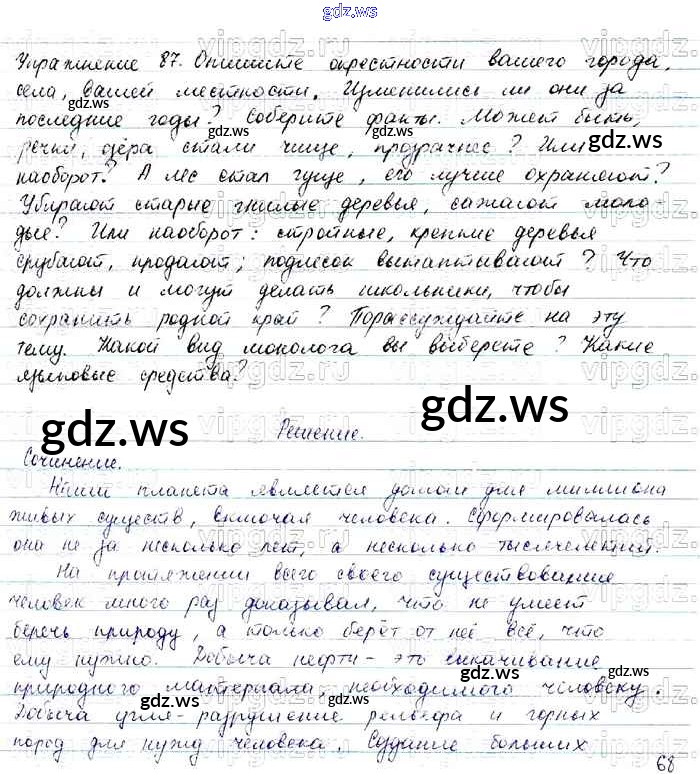 gdz.ws
Упражнение 87. Опишите окрестности вашего города,
села, вашей местности. Изменились ли они за
последние годы? Соберите факты. Может быть,
речки, озёра стали чище, прозрачнее? Или
наоборот? А лес стал гуще, его лучше охраняют?
Убирают старые гнилые деревья, сажают моло-
дые? Или наоборот: стройные, крепкие деревья
срубают, продают; подлесок вытаптывают? Что
должны и могут делать школьники, чтобы
сохранить родной край? Порассуждайте на эту
тему. Какой вид монолога вы выберете? Какие
языковые средства?
gdz.ws gdz.ws
Решение.
Сочинение.
Наши планета является домом для миллиона
живых существ, включая человека. Сформировалась
она не за несколько лет, а несколько тысячелетий.
На протяжении всего своего существования
человек много раз доказывал, что не умеет
беречь природу, а только берёт от неё всё, что
ему нужно. Добыча нефти - это выкачивание
природного материала, необходимого человеку.
Добыча угля - разрушение рельефа и горных
пород для нужд человека. Создание больших
gdz.ws gdz.ws
68
gdz.ws